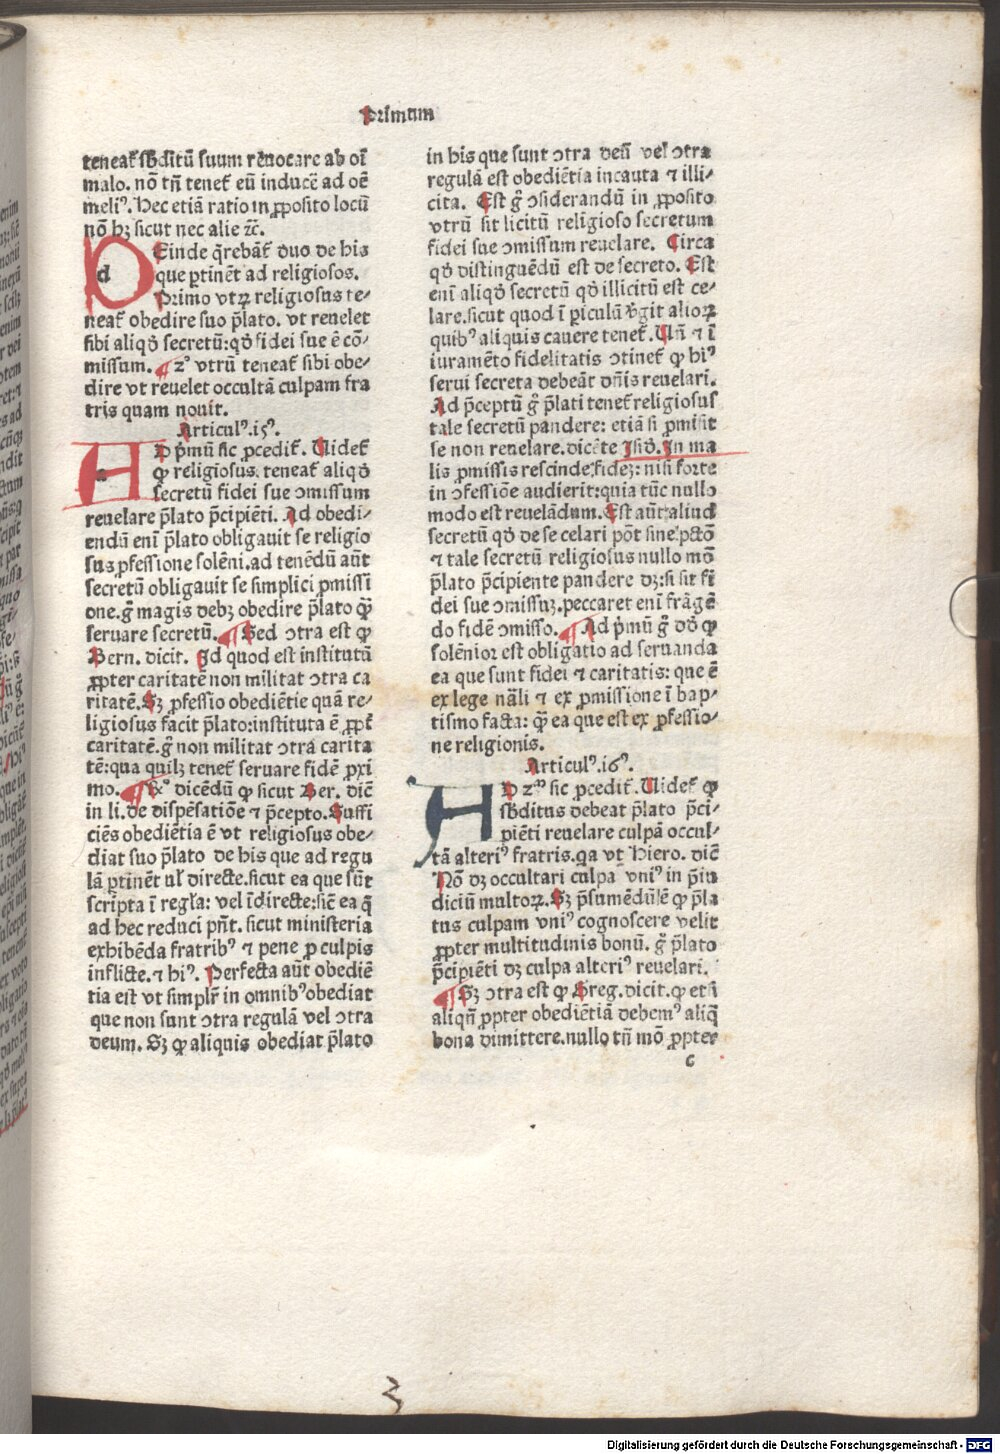 Primum
teneat᷒ sb̄ditū suum reuocare ab oī
malo. nō tn̄ tenet᷒ eū inducē ad oē
meliꝰ. Hec etiā ratio in ꝓposito locū
nō hꝫ sicut nec alie ⁊c̄.
Deinde q̄rebāt᷒ duo de his
d que ꝑtinēt ad religiosos.
Primo vtꝝ religiosus te⸗
neat᷒ obedire suo p̄lato. vt reuelet
sibi aliqḋ secretū: qḋ fidei sue ē cō⸗
missum. ¶ 2ͦ vtrū teneat᷒ sibi obe⸗
dire vt reuelet occultā culpam fra
tris quam nouit.
Articulꝰ .15ꝰ.
AD p̄mū sic ꝓcedit᷒. Videt᷒
a ꝙ religiosus teneat᷒ aliqḋ
secretū fidei sue ↄmissum
reuelare p̄lato p̄cipiēti. Ad obedi⸗
endū enī p̄lato obligauit se religio
sus ꝓfessione solēni. ad tenēdū aūt
secretū obligauit se simplici ꝓmissi
one. g̊ magis debꝫ obedire p̄lato q̄ꝫ
seruare secretū. ¶ Sed ↄtra est ꝙ
Bern. dicit. Id quod est institutū
ꝓpter caritatē non militat ↄtra ca
ritatē. Sꝫ ꝓfessio obediētie quā re⸗
ligiosus facit p̄lato: instituta ē ꝓpt᷒
caritatē. g̊ non militat ↄtra carita
tē: qua quilꝫ tenet᷒ seruare fidē ꝓxi
mo. ¶ Rͦ dicēdū ꝙ sicut Ber. dic̄
in li. de dispēsatiōe ⁊ p̄cepto. Suffi
ciēs obediētia ē vt religiosus obe⸗
diat suo p̄lato de his que ad regu
lā ꝑtinēt vl᷒ directe. sicut ea que sūt
scripta ī regl̄a: vel īdirecte: sic̄ ea q̄
ad hec reduci pn̄t. sicut ministeria
exhibēda fratribꝰ ⁊ pene ꝓ culpis
inflicte. ⁊ hiꝰ. Perfecta aūt obediē
tia est vt simpl᷒r in omnibꝰ obediat
que non sunt ↄtra regulā vel ↄtra
deum. Sꝫ ꝙ aliquis obediat p̄lato
in his que sunt ↄtra deū vel ↄtra
regulā est obediētia incauta ⁊ illi⸗
cita. Est g̊ ↄsiderandū in ꝓposito
vtrū sit licitū religioso secretum
fidei sue ↄmissum reuelare. Circa
qḋ distinguēdū est de secreto. Est
enī aliqḋ secretū qḋ illicitū est ce⸗
lare. sicut quod ī ꝑiculū v̓git alioꝝ
quibꝰ aliquis cauere tenet᷒. Vn̄ ⁊ ī
iuramēto fidelitatis ↄtinet᷒ ꝙ hiꝰ
serui secreta debeāt dn̄is reuelari.
Ad p̄ceptū g̊ p̄lati tenet᷒ religiosus
tale secretū pandere: etiā si ꝓmisit
se non reuelare. dicēte Isiḋ. In ma
lis ꝓmissis rescinde fidez: nisi forte
in ↄfessiōe audierit: quia tūc nullo
modo est reuelādum. Est aūt aliud
secretū qḋ de se celari pōt sine pctō
⁊ tale secretū religiosus nullo mō
p̄lato p̄cipiente pandere dꝫ: si sit fi
dei sue ↄmissuꝫ. peccaret enī frāgē
do fidē ↄmisso. ¶ Ad p̄mū g̊ dḋ ꝙ
solēnior est obligatio ad seruanda
ea que sunt fidei ⁊ caritatis: que ē
ex lege nāli ⁊ ex ꝓmissione ī bap⸗
tismo facta: q̄ꝫ ea que est ex ꝓfessio⸗
ne religionis.
Articulꝰ .16ꝰ.
AD 2ᵐ sic ꝓcedit᷒. Videt᷒ ꝙ
sb̄ditus debeat p̄lato p̄ci⸗
piēti reuelare culpā occul⸗
tā alteriꝰ fratris. qa vt Hiero. dic̄
Nō dꝫ occultari culpa vniꝰ in p̄iu
diciū multoꝝ. Sꝫ p̄sumēdū ē ꝙ p̄la
tus culpam vniꝰ cognoscere velit
ꝓpter multitudinis bonū. g̊ p̄lato
p̄cipiēti dꝫ culpa alteriꝰ reuelari.
¶ Sꝫ ↄtra est ꝙ Greg. dicit. ꝙ etsi
aliqn̄ ꝓpter obediētiā debemꝰ aliq̄
bona dimittere. nullo tn̄ mō ꝓpter
c
3
Digitalisierung gefördert durch die Deutsche Forschungsgemeinschaft - DFG